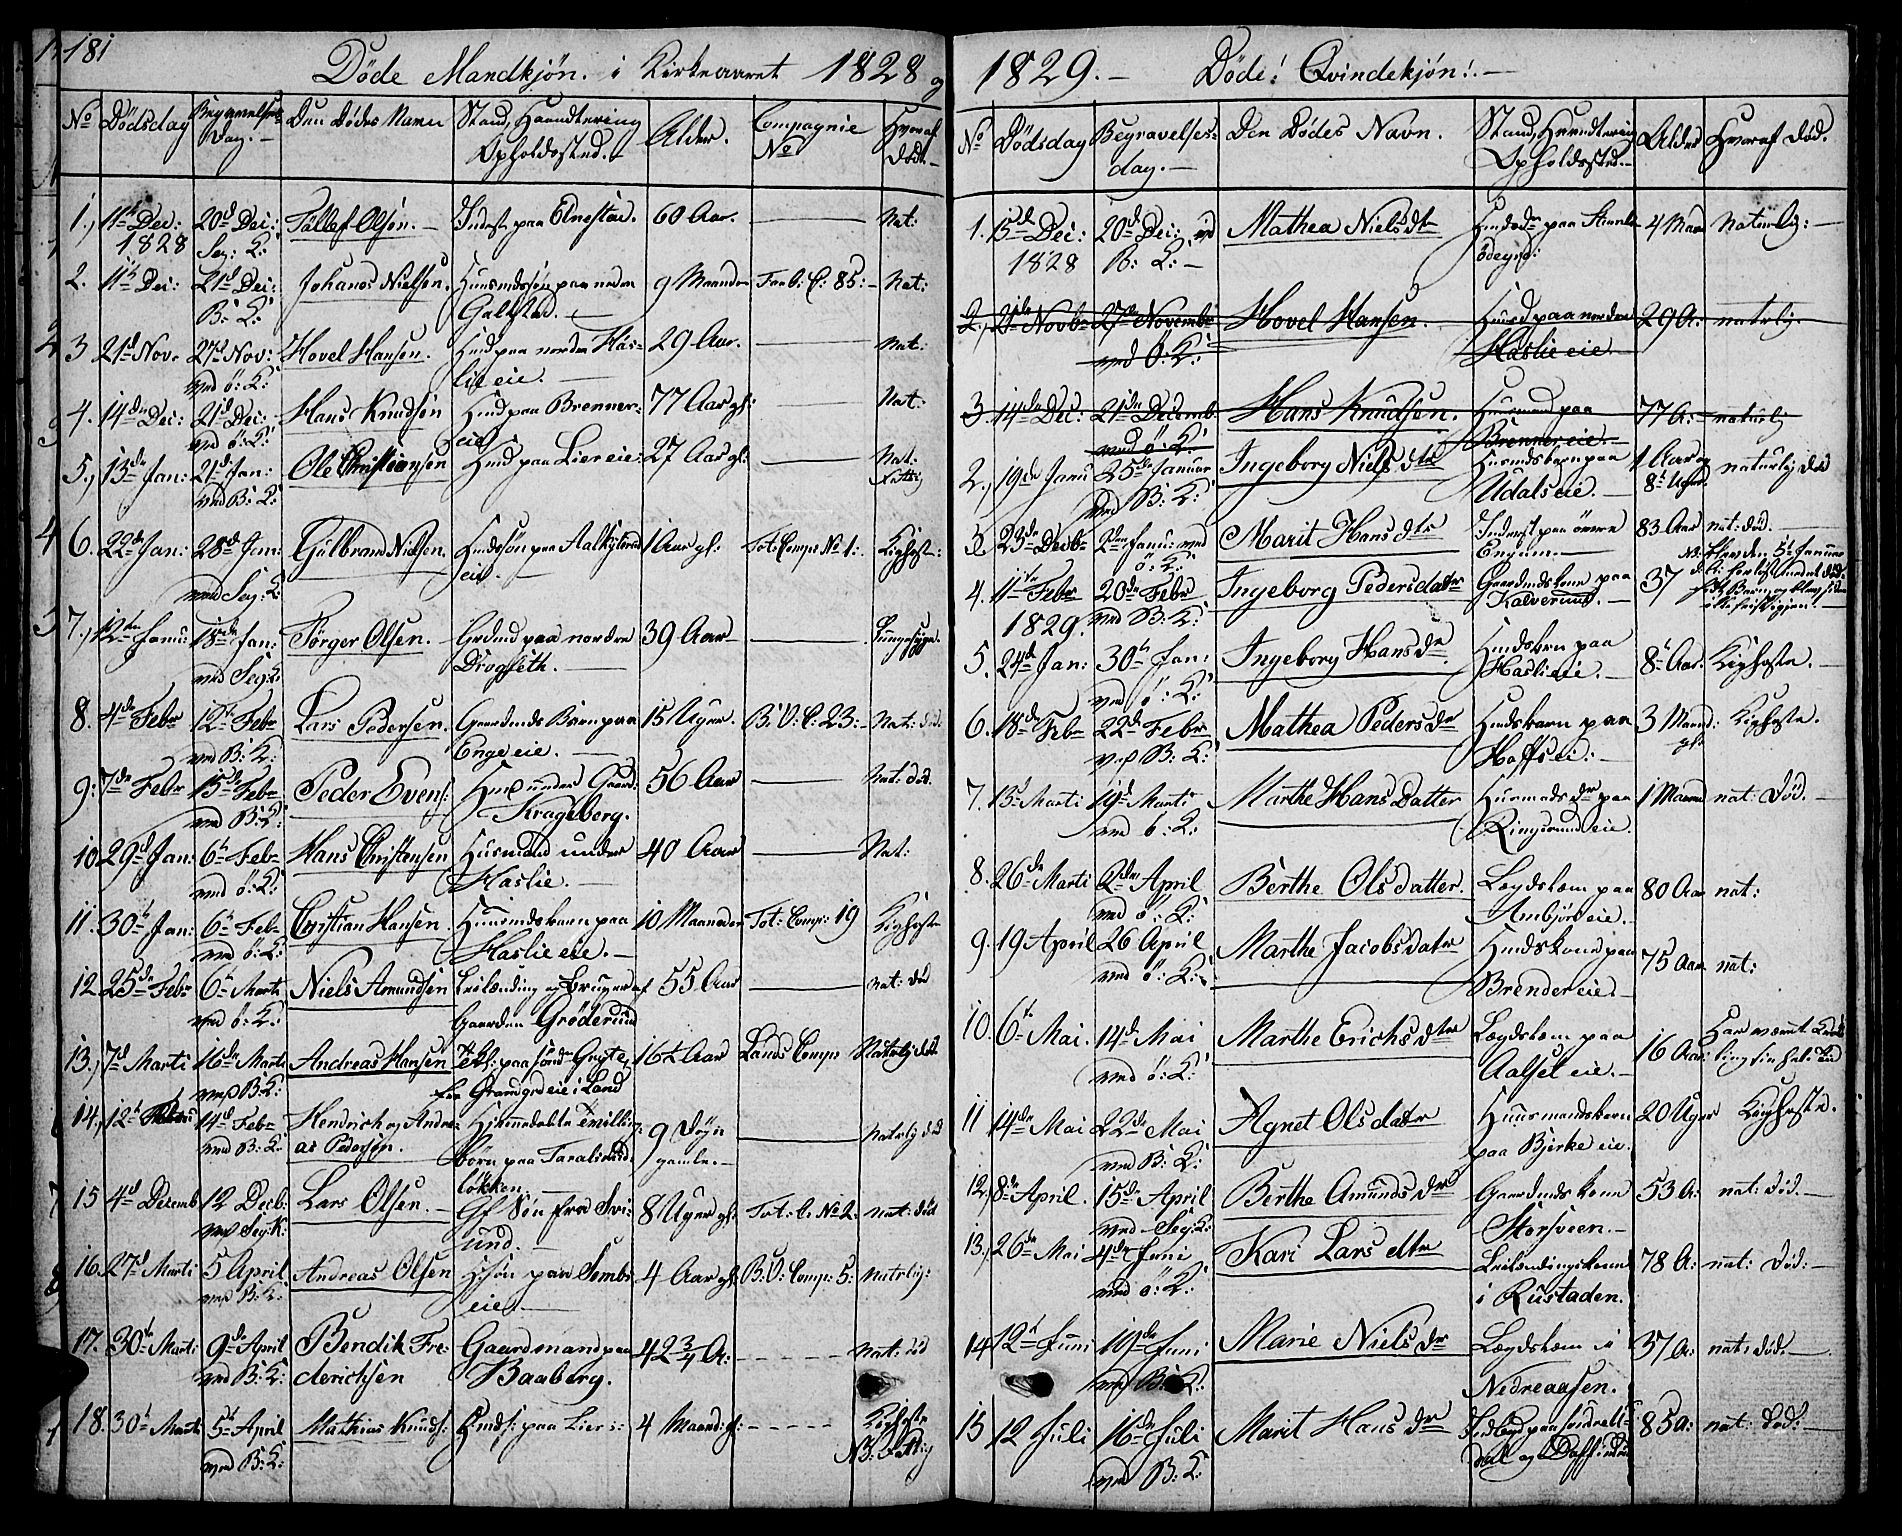 181
Döde Mandkjön. i Kirkeaaret 1828 og
No Dödsday Begravelses Dag. Den Dödes Navn Stand, Haandtering Opholdssted. Alder. Compagnie No Hvoraf död.
1., 11te Dec: 1828 20de Dec: Seg: K: Tollef Olsön. Inderst paa Elnestad. 60 Aar. Nat:
2. 11te Dec: 21de Dec: B: K: Johanes Nielsen. Huusmdssön paa nedre Galtstad. 9 Maaneder 85: Nat:
3 21de Nov. 27de Nov: med ö: K: Hovel Hansen. Husmd paa nordre Haslie eie. 29 Aar. Nat:
4. 14de Dec: 21de Dec: med ö: K: Hans Knudsön Husmd paa Brenner: eie 77 Aar gl: Nat:
5., 13de Jan: 21de Jan: med B: K: Ole Christiansen Husmd paa Lier eie: 27 Aar gl: Nat: Fattig
6. 22de Jan: 28de Jan: med Seg: K: Gulbrand Nielsen. eie. 1 Aar gl: Tot: Comp: No 1: Kighoste:
7., 12te Janu: 18de Jan: med Seg: K: Torger Olsen. Grdmd paa nordre Drogseth. 39 Aar Lungesyge.
8. 4de Febr 12te Febr med B: K: Lars Pedersen. Gaardmds Barn paa Enge eie. 15 Uger. B: O: C: 23: Nat: död.
9: 7de Febr 15de Febr med B: K: Peder Even: Husmd under Gaard Krageberg. 56 Aar Nat: död.
10. 29de Jan: 6te Feb med ö: K: Hans Christansen Husmand under Haslie. 40 Aar Nat:
11. 30te Jan: 6te Feb med ö: K: Christian Hansen. Huusmdsbarn paa Haslie eie. 10 Maaneder Tot: Comp: 19 Kighoste
12 25de Febr 6te Marti med ö: K: Niels Amundsen Leilænding og Bruger af Gaarden Gröderud 55 Aar nat: död
13., 7de Marti 16de Marti med B: K: Andreas Hansen paa sönd Gryte, fra Grandgrd eie i Land 16½ Aar Lands Comp Naturlig död
14., 12te 14de Feb med B: K: Hendrich og Andreas Pedersön. Hiemmedöbte Tvilling börn paa Taralsrud lökken 9 Döyn gamle. Naturlig död
15 4de Decemb 12 Decb: med Seg: K: Lars Olsen. Gf Sön fra Svirund. 8 Uger gl: Tot: C. No 2: nat: död
16. 27de Marti 5 April med B: K: Andreas Olsen Hsön paa Sembs eie 4 Aar gl: B: O: Comp: 5: Naturlig:
17. 30te Marti 9de April med B: K: Bendik Frederichsen Gaardmand paa Baaberg. 42¾ A: Nat: död
18. 30te Marti 5te April med B: K: Mathias Knuds: Hmds: paa Lier e: 4 Maand: gl: Kighoste NB. Fattig
1829. Döde! Qvindekjön!.
No Dödsday Begravelses: day. Den Dödes Navn. Stand, Haandtering Opholdssted. Alder Hvoraf död.
1. 15de Dec: 1828 20de Dec: B: K: Mathea Nielsdtr Husmdsdtr paa ödegrd: 4 Maan Naturlig:
2., 21de Novbr 27de Novembr med Ö: K: Hovel Hansen. Husmd paa nordre Haslie eie 29 A: naturlig.
3 14de Dec: 21de Decemb: med ö: K: Hans Knudsen. Huusmand paa Brenner eie. 77 A: naturlig
2., 19de Janu 25de Januar med B: K: Ingeborg Niels dtr Husmdsbarn paa Udals eie. 1 Aar og 8te Uger. naturlig död
3 23de Decb 2den Janu: med ö: K: Marit Hans dtr Inderst paa övre Engen. 83 Aar nat: död.
4. 11te Febr 1829. 20de Febr med B: K: Ingeborg Pedersdatter Gaardmdskone paa Kalverud. 37
5. 24de Jan: 30te Jan: med ö: K: Ingeborg Hansdr. Husmdsbrn paa Haslie eie. 8te Aar. Kighoste.
6. 18de Feb 22de Febr med B: K: Mathea Pedersdr Husmdsbarn paa Hoffs ei: 3 Maand: gl: Kighoste.
7. 13de Marti 19de Marti med ö: K: Marthe Hans Datter Husmands dr paa Ringerud eie. 1 Maaned nat: Död.
8. 26de Marti 2den April med ö: K: Berthe Olsdatter. Lægdslem paa Ambjör eie. 80 Aar nat:
9. 19 April 26 April med ö: K: Marthe Jacobsdatr Husmdskone paa Brender eie. 75 Aar nat:
10. 6te Mai. 14de Mai med ö: K: Marthe Erichs dtr Lægdslem paa Aalset eie. 16 Aar: Har været Krøbling sin hele tid
11 14de Mai 22de Mai med B: K: Agnet Olsdatr Huusmandsbarn paa Bjerke eie. 20 Uger Kighoste.
12, 8de April. 15de April med Seg: K: Berthe Amunds dr Gaardmds kone Storsveen. 53 A: nat: död.
13., 26de Mai 4de Juni med ö: K: Kari Lars dtr Leilendingskone i Rustaden. 78 A: nat: död:
14 12te Juni 19de Juni med B: K: Marie Niels dr Lægdslem i Nedreaasen. 37 A: nat: död.
15 12 Juli 16de Juli med B: K: Marit Hans dr 85 A: nat: död: